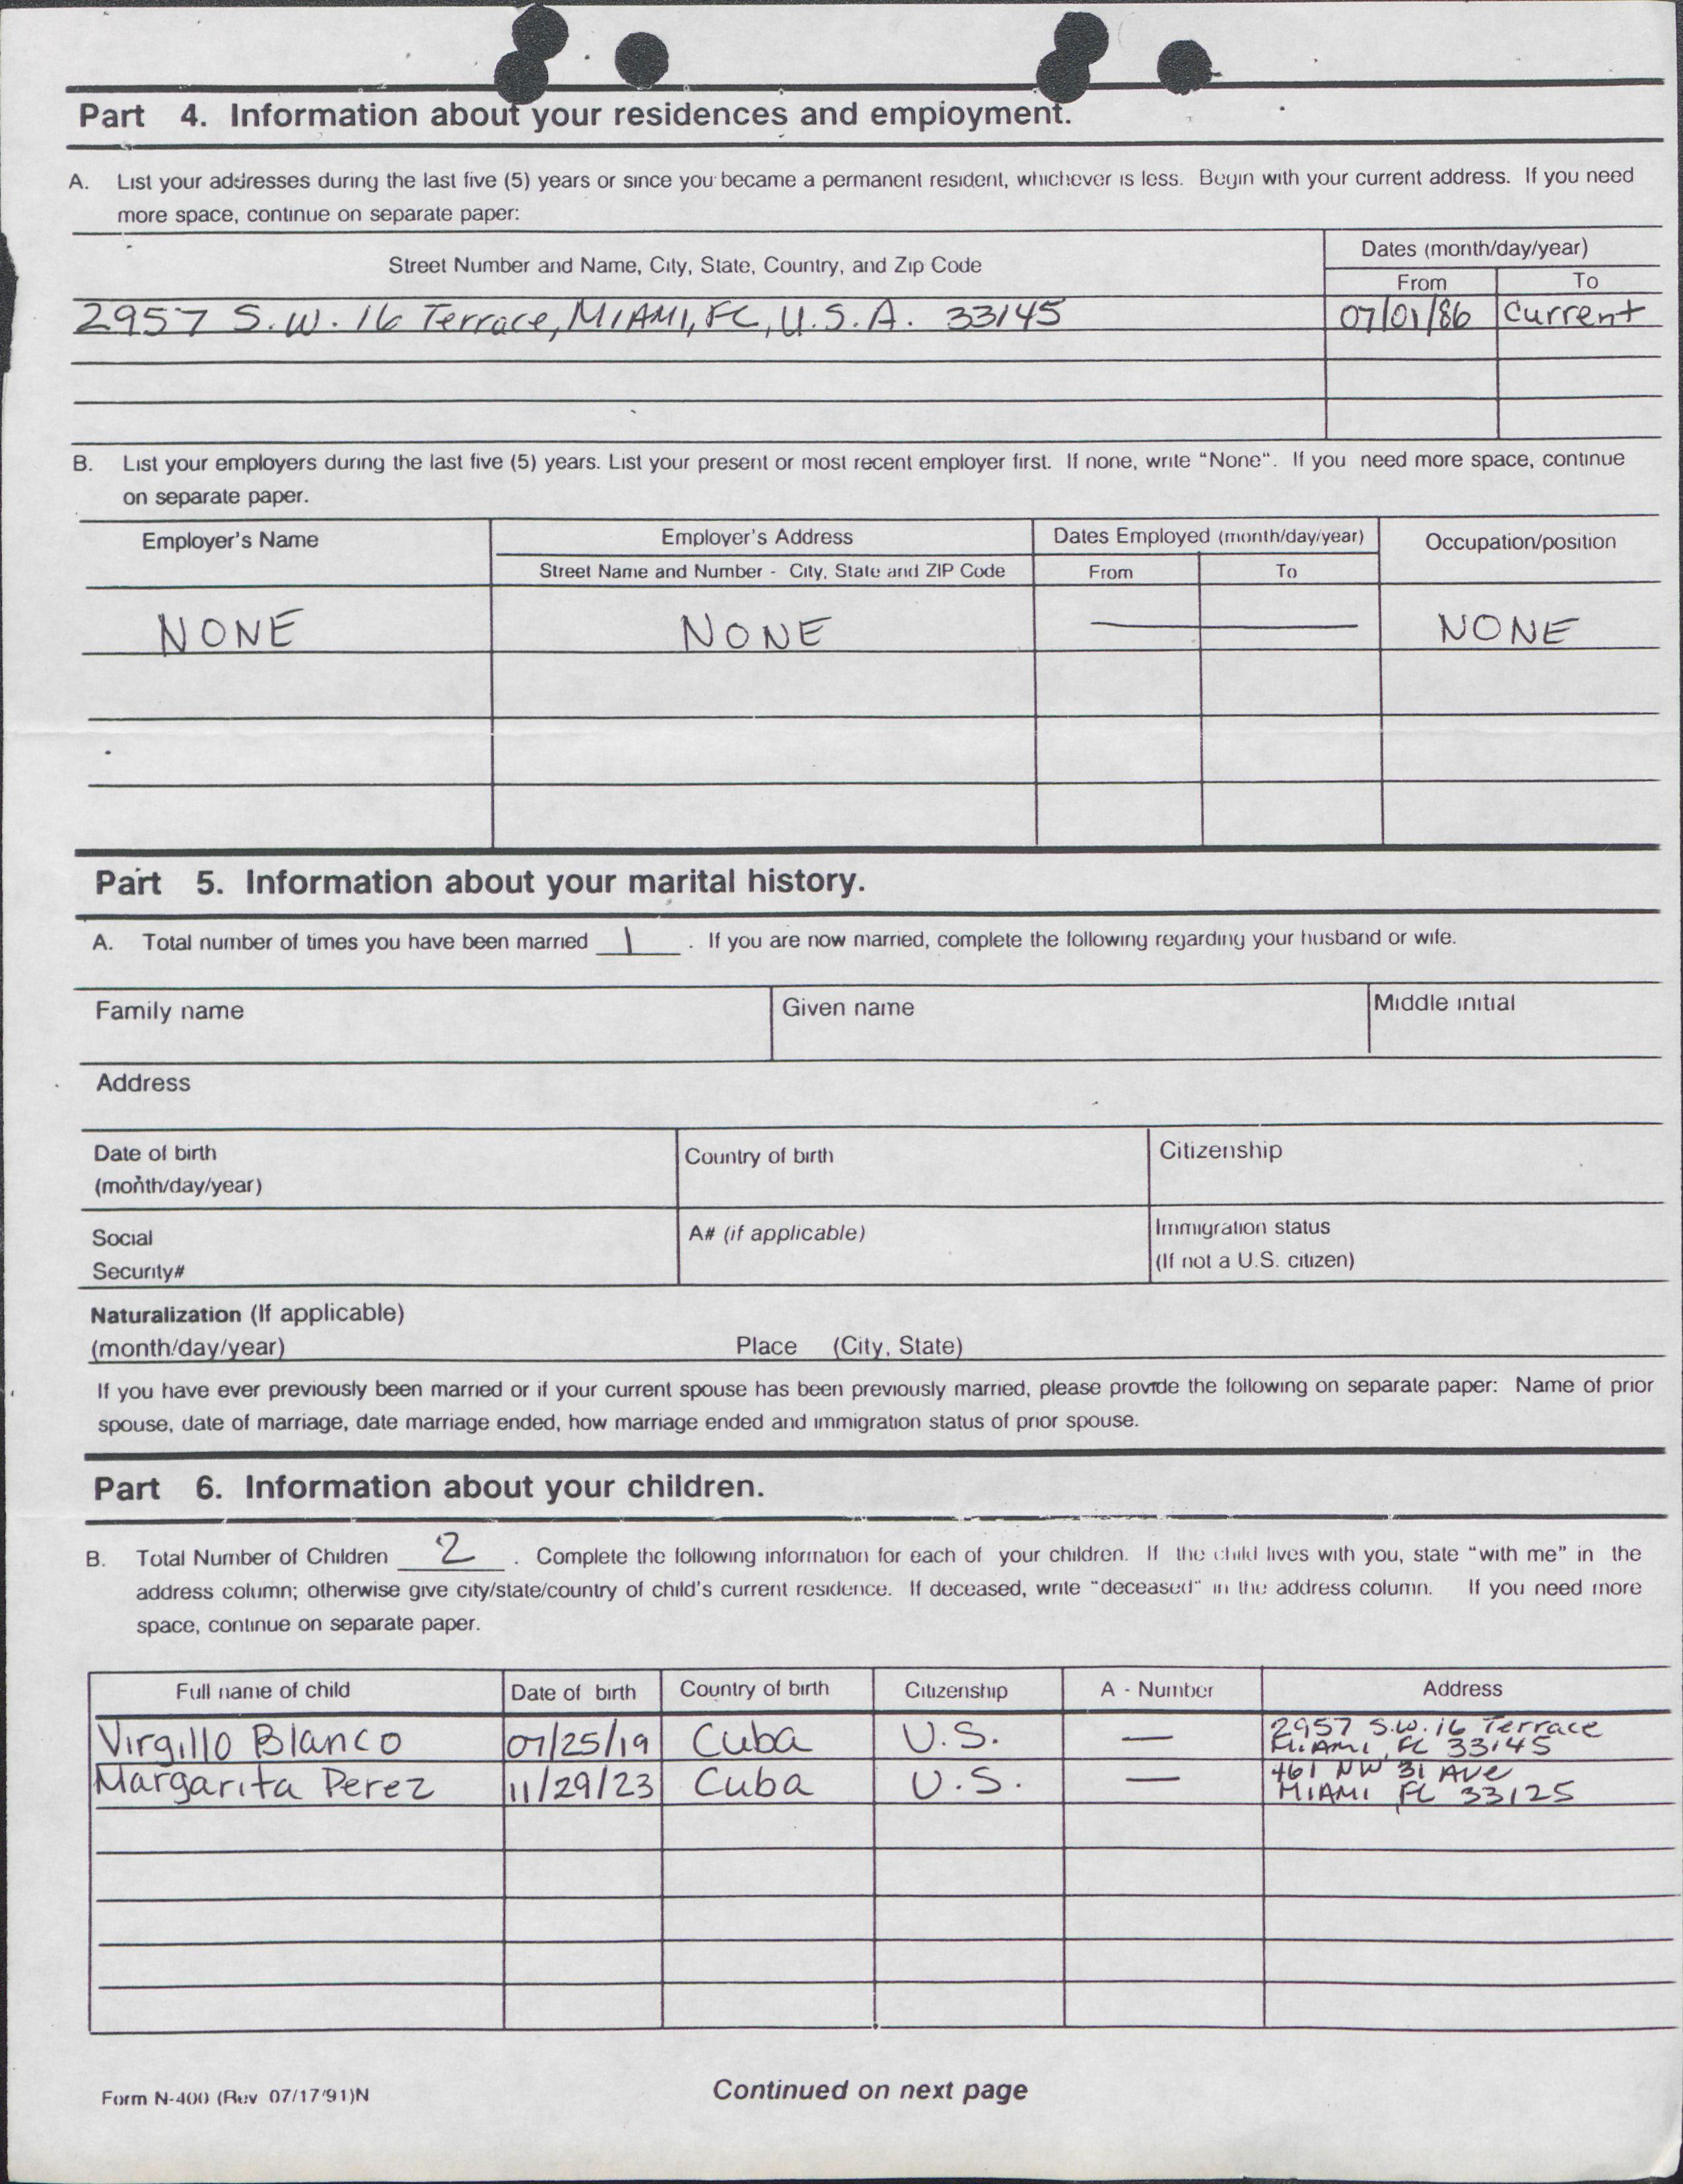 Part 4. Information about your residences and employment.
A. List your addresses during the last five (5) years or since you became a permanent resident, whichever is less. Begin with your current address. If you need
more space, continue on separate paper:
Street Number and Name, City, State, Country, and Zip Code
Dates (month/day/year)
From To
2957 S.W. 16 Terrace, MIAMI, FL, U.S.A. 33145 07/01/86 Current
B. List your employers during the last five (5) years. List your present or most recent employer first. If none, write "None". If you need more space, continue
on separate paper.
Employer's Name Employer's Address Dates Employed (month/day/year) Occupation/position
Street Name and Number - City, State and ZIP Code From To
NONE NONE — NONE
Part 5. Information about your marital history.
A. Total number of times you have been married 1 . If you are now married, complete the following regarding your husband or wife.
Family name Given name Middle initial
Address
Date of birth Country of birth Citizenship
(month/day/year)
Social A# (if applicable) Immigration status
Security# (If not a U.S. citizen)
Naturalization (If applicable)
(month/day/year) Place (City, State)
If you have ever previously been married or if your current spouse has been previously married, please provide the following on separate paper: Name of prior
spouse, date of marriage, date marriage ended, how marriage ended and immigration status of prior spouse.
Part 6. Information about your children.
B. Total Number of Children 2 . Complete the following information for each of your children. If the child lives with you, state "with me" in the
address column; otherwise give city/state/country of child's current residence. If deceased, write "deceased" in the address column. If you need more
space, continue on separate paper.
Full name of child Date of birth Country of birth Citizenship A - Number Address
Virgillo Blanco 07/25/19 Cuba U.S. — 2957 S.W. 16 Terrace
MIAMI, FL 33145
Margarita Perez 11/29/23 Cuba U.S. — 461 NW 31 AVE
MIAMI FL 33125
Form N-400 (Rev 07/17/91)N Continued on next page